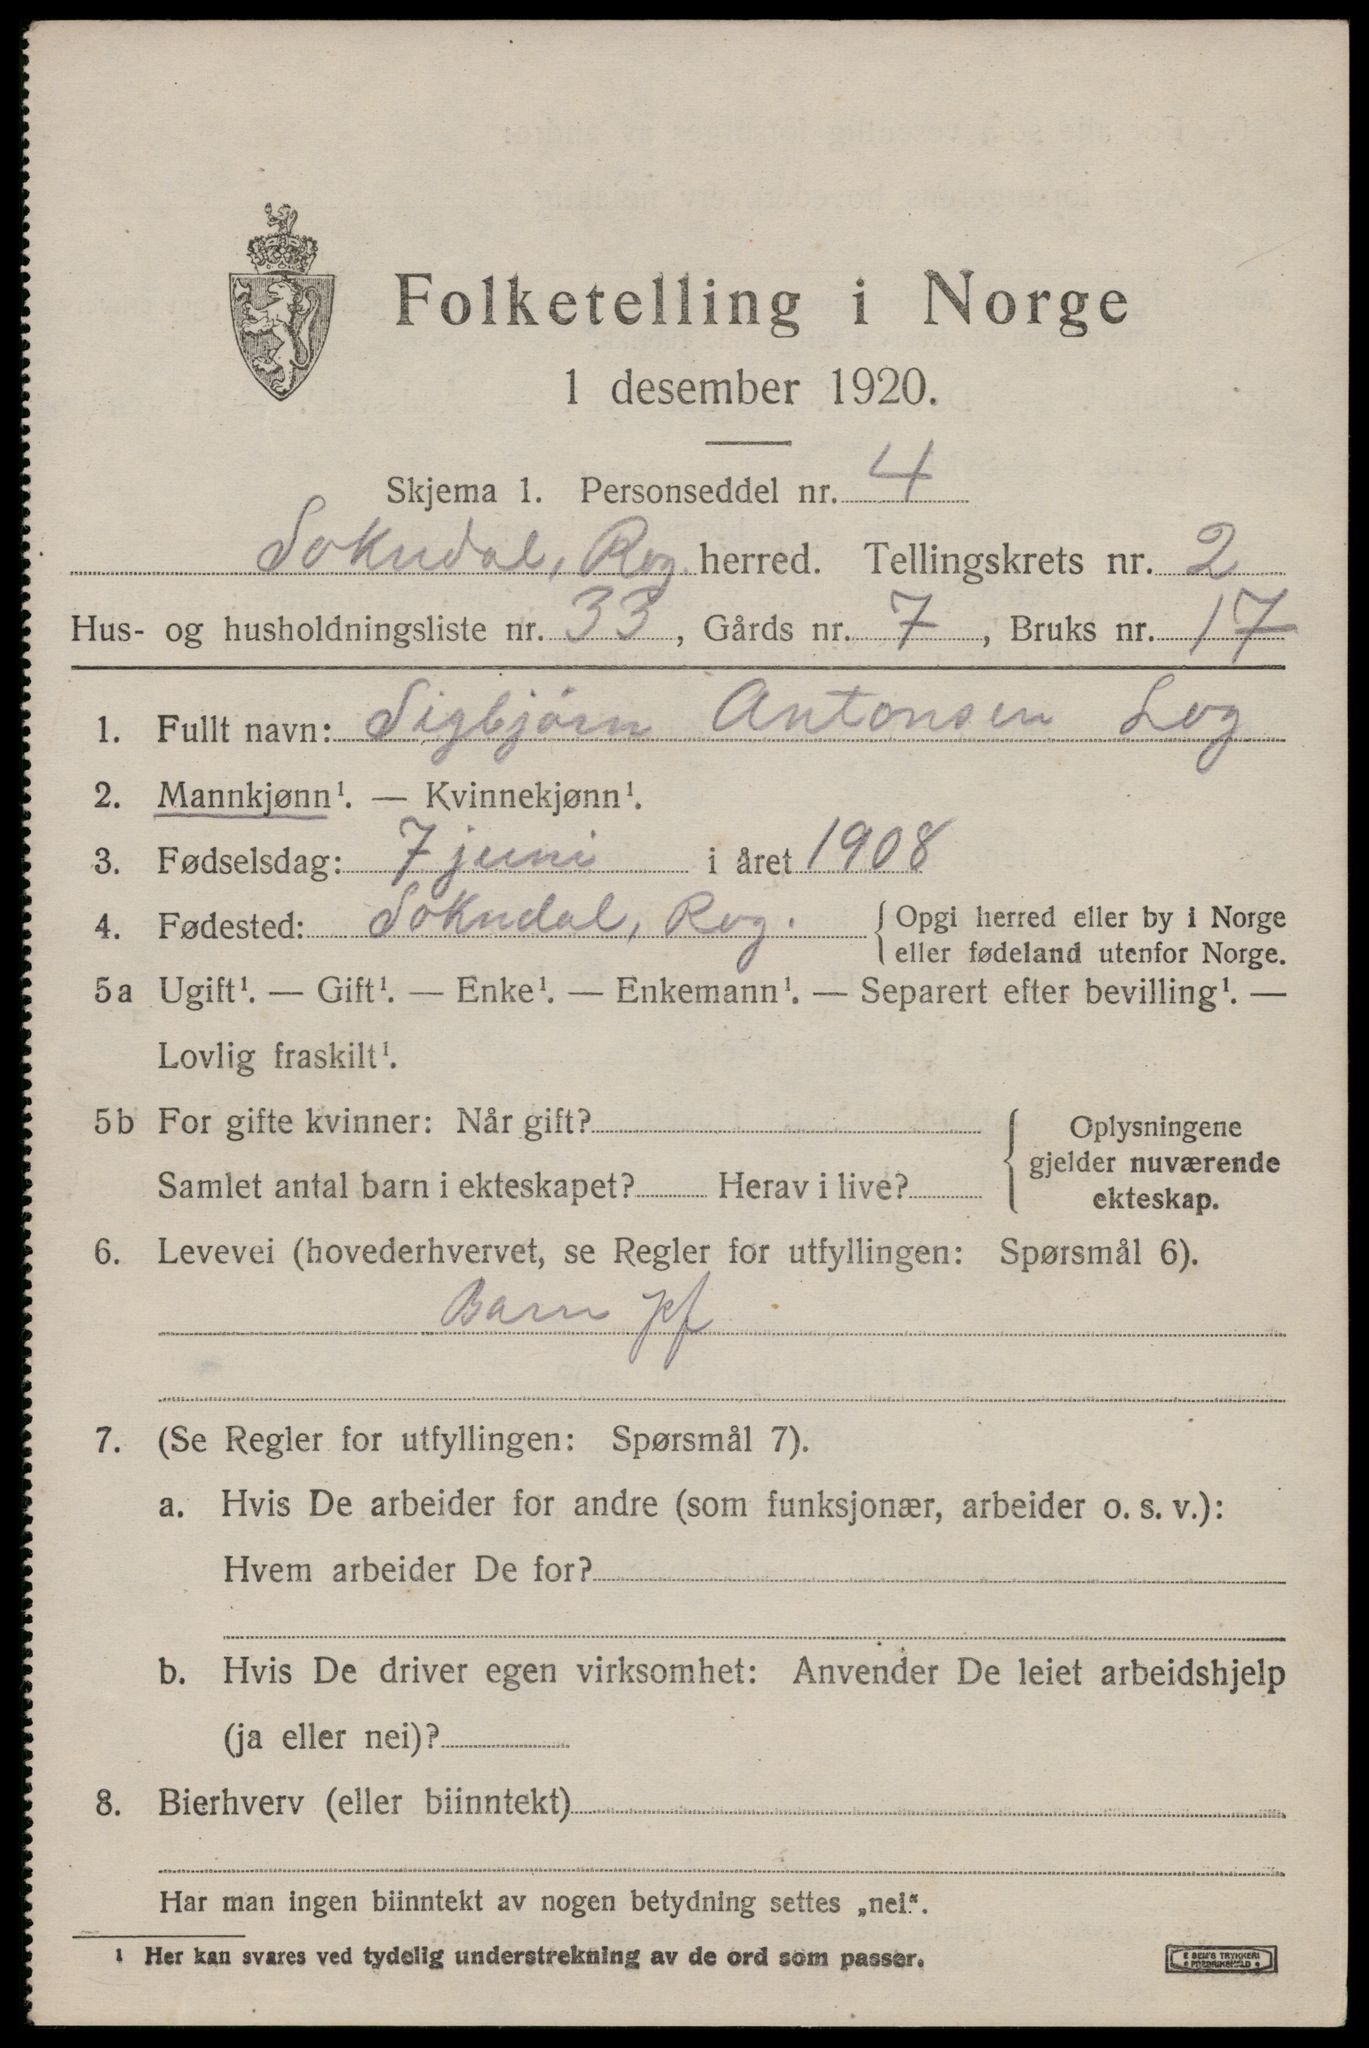 Folketelling i Norge
1 desember 1920.
Skjema 1. Personseddel nr. 4
Sokndal, Rog. herred. Tellingskrets nr. 2
Hus- og husholdningsliste nr. 33, Gårds nr. 7, Bruks nr. 17
1. Fullt navn: Sigbjørn Antonsen Log
2. Mannkjønn¹. — Kvinnekjønn¹.
3. Fødselsdag: 7 juni i året 1908
4. Fødested: Sokndal, Rog. { Opgi herred eller by i Norge
eller fødeland utenfor Norge.
5a Ugift¹. — Gift¹. — Enke¹. — Enkemann¹. — Separert efter bevilling¹. —
Lovlig fraskilt¹.
5b For gifte kvinner: Når gift?
Samlet antal barn i ekteskapet? Herav i live?
{ Oplysningene
gjelder nuværende
ekteskap.
6. Levevei (hovederhvervet, se Regler for utfyllingen: Spørsmål 6).
Barn pf
7. (Se Regler for utfyllingen: Spørsmål 7).
a. Hvis De arbeider for andre (som funksjonær, arbeider o. s. v.):
Hvem arbeider De for?
b. Hvis De driver egen virksomhet: Anvender De leiet arbeidshjelp
(ja eller nei)?
8. Bierhverv (eller biinntekt)
Har man ingen biinntekt av nogen betydning settes „nei“.
¹ Her kan svares ved tydelig understrekning av de ord som passer.
E SEM'S TRYKKERI
FREDRIKSHALD